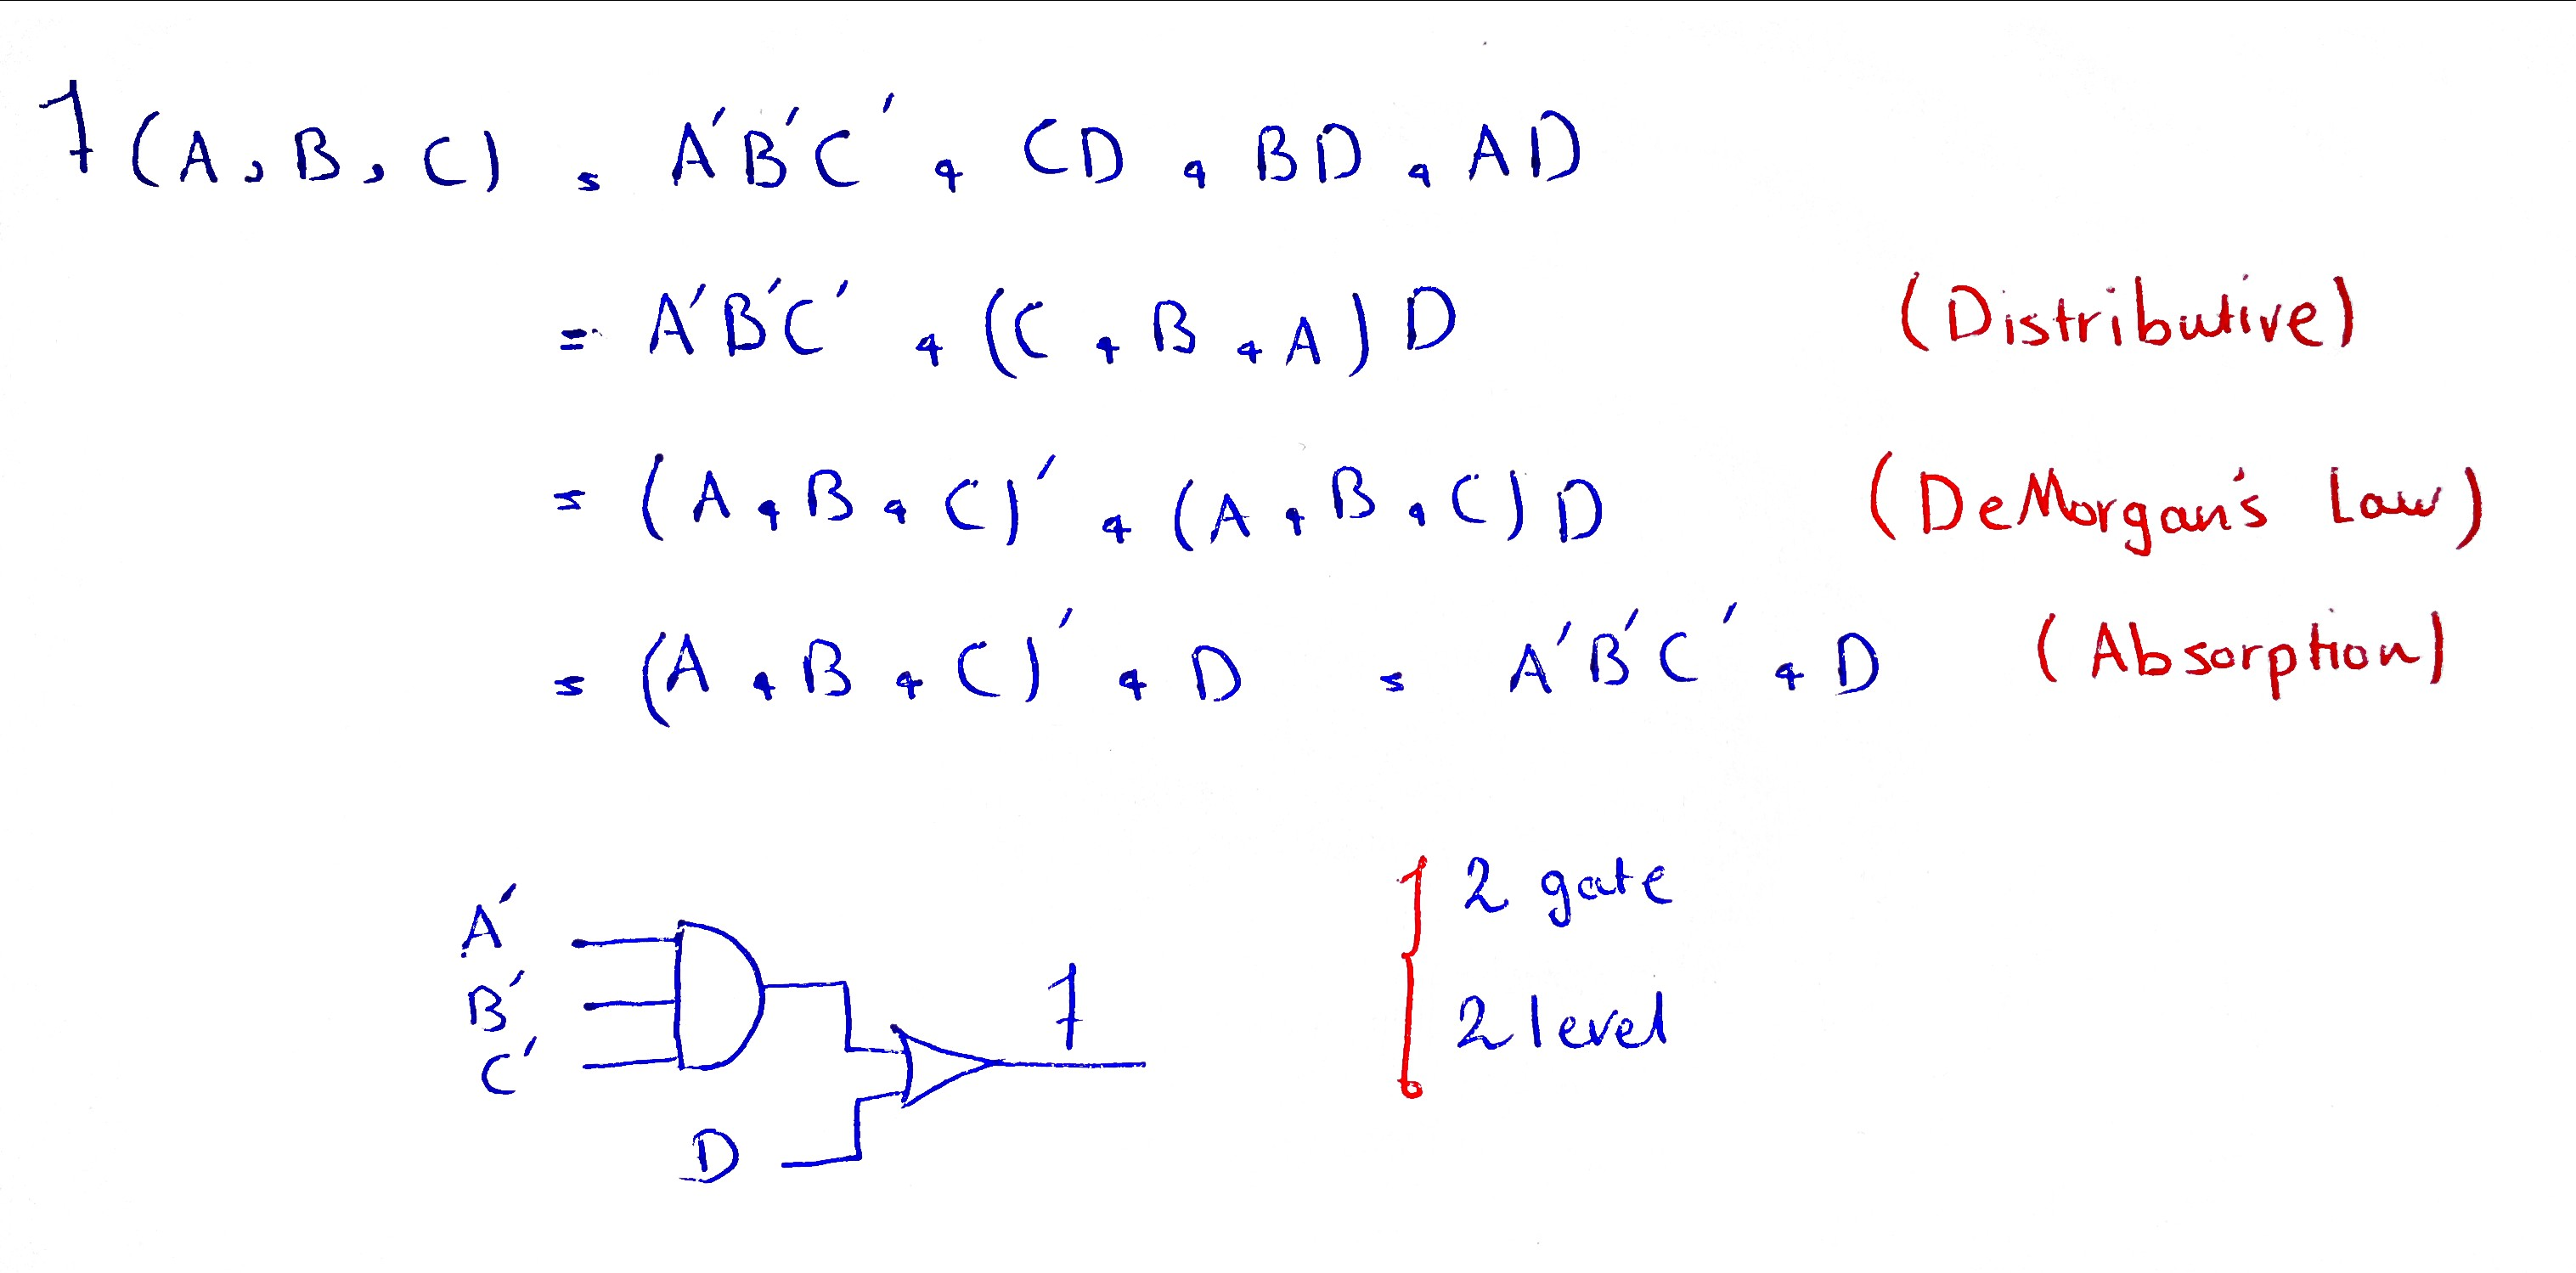 f(A,B,C) = A'B'C' + CD + BD + AD
= A'B'C' + (C + B + A)D (Distributive)
= (A+B+C)' + (A+B+C)D (DeMorgan's Law)
= (A+B+C)' + D = A'B'C' + D (Absorption)
A'
B'
C'
D
f
2 gate
2 level